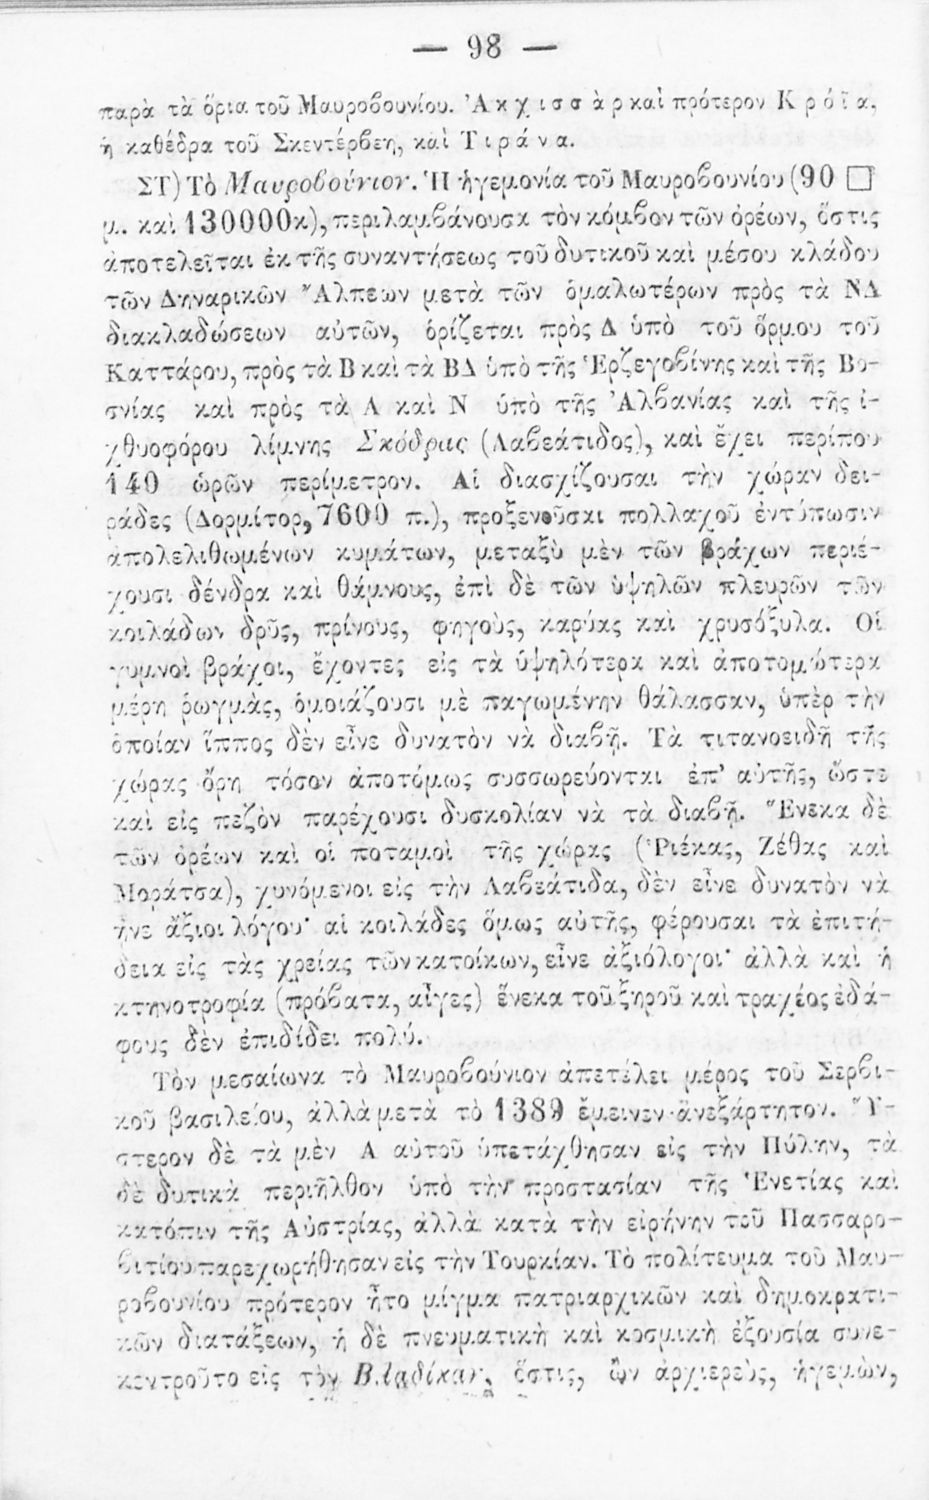 — 98 —
παρὰ τὰ ὅρια τοῦ Μαυροβουνίου. Ἀκχισσὰρ καὶ πρότερον Κρόϊα,
ἡ καθέδρα τοῦ Σκεντέρβεη, καὶ Τιράνα.
ΣΤ) Τὸ Μαυροβούνιον. Ἡ ἡγεμονία τοῦ Μαυροβουνίου (90 □
μ. καὶ 130000κ), περιλαμβάνουσα τὸν κόμβον τῶν ὀρέων, ὅστις
ἀποτελεῖται ἐκ τῆς συναντήσεως τοῦ δυτικοῦ καὶ μέσου κλάδου
τῶν Δηναρικῶν Ἄλπεων μετὰ τῶν ὁμαλωτέρων πρὸς τὰ ΝΔ
διακλαδώσεων αὐτῶν, ὁρίζεται πρὸς Δ ὑπὸ τοῦ ὅρμου τοῦ
Καττάρου, πρὸς τὰ Β καὶ τὰ ΒΔ ὑπὸ τῆς Ἑρζεγοβίνης καὶ τῆς Βο-
σνίας καὶ πρὸς τὰ Α καὶ Ν ὑπὸ τῆς Ἀλβανίας καὶ τῆς ἰ-
χθυοφόρου λίμνης Σκόδρας (Λαβεάτιδος), καὶ ἔχει περίπου
140 ὡρῶν περίμετρον. Αἱ διασχίζουσαι τὴν χώραν δει-
ράδες (Δορμίτορ, 7600 π.), προξενοῦσαι πολλαχοῦ ἐντύπωσιν
ἀπολελιθωμένων κυμάτων, μεταξὺ μὲν τῶν βράχων περιέ-
χουσι δένδρα καὶ θάμνους, ἐπὶ δὲ τῶν ὑψηλῶν πλευρῶν τῶν
κοιλάδων δρῦς, πρίνους, φηγούς, καρύας καὶ χρυσόξυλα. Οἱ
γυμνοὶ βράχοι, ἔχοντες εἰς τὰ ὑψηλότερα καὶ ἀποτομώτερα
μέρη ῥωγμὰς, ὁμοιάζουσι μὲ παγωμένην θάλασσαν, ὑπὲρ τὴν
ὁποίαν ἵππος δὲν εἶνε δυνατὸν νὰ διαβῇ. Τὰ τιτανοειδῆ τῆς
χώρας ὄρη τόσον ἀποτόμως συσσωρεύονται ἐπ' αὐτῆς, ὥστε
καὶ εἰς πεζὸν παρέχουσι δυσκολίαν νὰ τὰ διαβῇ. Ἕνεκα δὲ
τῶν ὀρέων καὶ οἱ ποταμοὶ τῆς χώρας (Ῥιέκας, Ζέθας καὶ
Μοράτσα), χυνόμενοι εἰς τὴν Λαβεάτιδα, δὲν εἶνε δυνατὸν νὰ
ἦνε ἄξιοι λόγου· αἱ κοιλάδες ὅμως αὐτῆς, φέρουσαι τὰ ἐπιτή-
δεια εἰς τὰς χρείας τῶν κατοίκων, εἶνε ἀξιόλογοι· ἀλλὰ καὶ ἡ
κτηνοτροφία (πρόβατα, αἶγες) ἕνεκα τοῦ ξηροῦ καὶ τραχέος ἐδά-
φους δὲν ἐπιδίδει πολύ.
Τὸν μεσαίωνα τὸ Μαυροβούνιον ἀπετέλει μέρος τοῦ Σερβι-
κοῦ βασιλείου, ἀλλὰ μετὰ τὸ 1389 ἔμεινεν ἀνεξάρτητον. Ὕ-
στερον δὲ τὰ μὲν Α αὐτοῦ ὑπετάχθησαν εἰς τὴν Πύλην, τὰ
δὲ δυτικὰ περιῆλθον ὑπὸ τὴν προστασίαν τῆς Ἑνετίας καὶ
κατόπιν τῆς Αὐστρίας, ἀλλὰ κατὰ τὴν εἰρήνην τοῦ Πασσαρο-
βιτίου παρεχωρήθησαν εἰς τὴν Τουρκίαν. Τὸ πολίτευμα τοῦ Μαυ-
ροβουνίου πρότερον ἦτο μίγμα πατριαρχικῶν καὶ δημοκρατι-
κῶν διατάξεων, ἡ δὲ πνευματικὴ καὶ κοσμικὴ ἐξουσία συνε-
κεντροῦτο εἰς τὸν Βλαδίκαν, ὅστις, ὢν ἀρχιερεὺς, ἡγεμὼν,